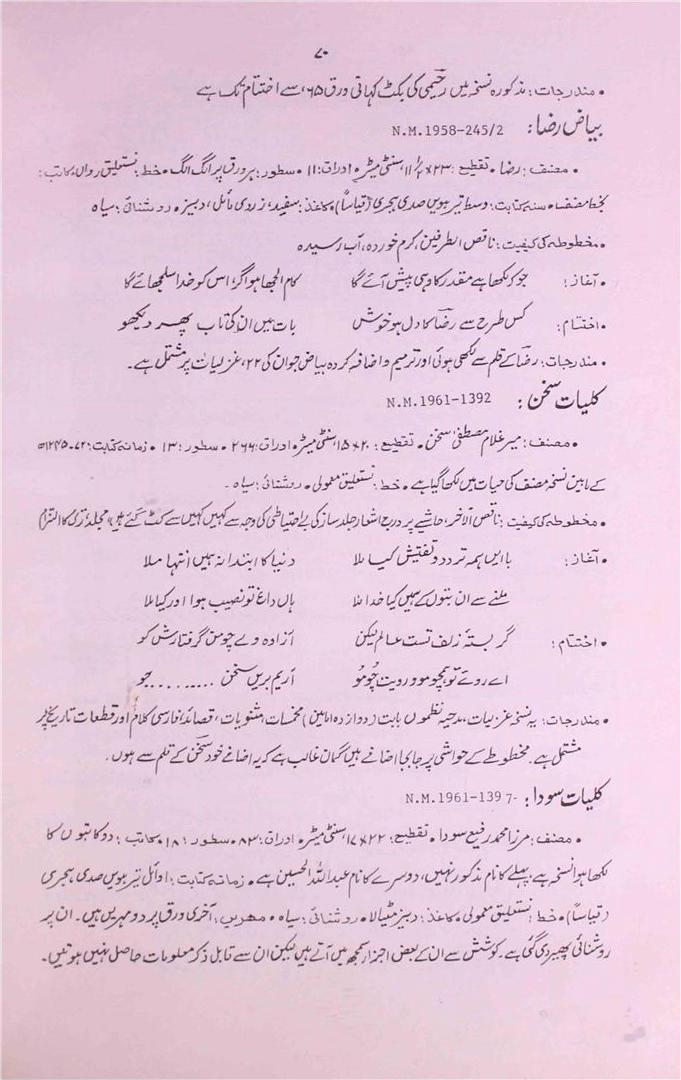 ۷۰
• مندرجات: مذکورہ نسخہ میں رحیمی کی بکٹ کہانی ورق ۶۵، سے اختتام تک ہے
بیاض رضا: N.M.1958-245/2
• مصنف: رضا • تقطیع: ۲۳×۱۱ سنٹی میٹر • اوراق: ۱۱ • سطور: ہر ورق پر الگ الگ • خط: نستعلیق رواں • کاتب:
بخط مصنف • سنہ کتابت: وسط تیرہویں صدی ہجری (قیاساً) • کاغذ: سفید، زردی مائل، دبیز • روشنائی: سیاہ
• مخطوطہ کی کیفیت: ناقص الطرفین، کرم خوردہ، آب رسیدہ
• آغاز: جو کہ لکھا ہے مقدر کا وہی پیش آئے گا کام الجھا ہوا گر، اس کو خدا سلجھائے گا
• اختتام: کس طرح سے رضا کا دل ہو خوش بات میں ان کی تاب پھر دیکھو
• مندرجات: رضا کے قلم سے لکھی ہوئی اور ترمیم و اضافہ کردہ بیاض جو ان کی ۲۲، غزلیات پر مشتمل ہے۔
کلیات سخن: N.M.1961-1392
• مصنف: میر غلام مصطفیٰ سخن • تقطیع: ۲۰×۱۵ سنٹی میٹر • اوراق: ۲۶۶ • سطور: ۱۳ • زمانہ کتابت: ۷۲-۱۲۴۵ھ
کے مابین نسخہ مصنف کی حیات میں لکھا گیا ہے • خط: نستعلیق معمولی • روشنائی: سیاہ۔
• مخطوطہ کی کیفیت: ناقص الآخر، حاشیے پر درج اشعار جلد ساز کی بے احتیاطی کی وجہ سے کہیں کہیں سے کٹ گئے ہیں، مجلد، ترک کا التزام
• آغاز: با ایں ہمہ تردد و تفتیش کیا ملا دنیا کا ابتدا نہ ہمیں انتہا ملا
ملنے سے ان بتوں کے ہمیں کیا خدا ملا ہاں داغ تو نصیب ہوا اور کیا ملا
• اختتام: گر بستۂ زلف تست عالم لیکن آزادہ وے چو من گرفتارش کو
اے روئے تو ہمچو مو و رویت چو مو آریم بریں سخن .......... جو
• مندرجات: یہ نسخہ غزلیات، مدحیہ نظموں بابت (دوازدہ امامین) مخمسات، مثنویات، قصائد، فارسی کلام اور قطعات تاریخ پر
مشتمل ہے۔ مخطوطے کے حواشی پر جابجا اضافے ہیں گمان غالب ہے کہ یہ اضافے خود سخن کے قلم سے ہوں۔
کلیات سودا: N.M.1961-1397-
• مصنف: مرزا محمد رفیع سودا • تقطیع: ۲۲×۱۷ سنٹی میٹر • اوراق: ۸۳ • سطور: ۱۸ • کاتب: دو کاتبوں کا
لکھا ہوا نسخہ ہے، پہلے کا نام مذکور نہیں، دوسرے کا نام عبداللہ الحسین ہے • زمانہ کتابت: اوائل تیرہویں صدی ہجری
(قیاساً) • خط: نستعلیق معمولی • کاغذ: دبیز مٹیالا • روشنائی: سیاہ • مہریں: آخری ورق پر دو مہریں ہیں۔ ان پر
روشنائی پھیر دی گئی ہے۔ کوشش سے ان کے بعض اجزا سمجھ میں آتے ہیں لیکن ان سے قابل ذکر معلومات حاصل نہیں ہوتیں۔